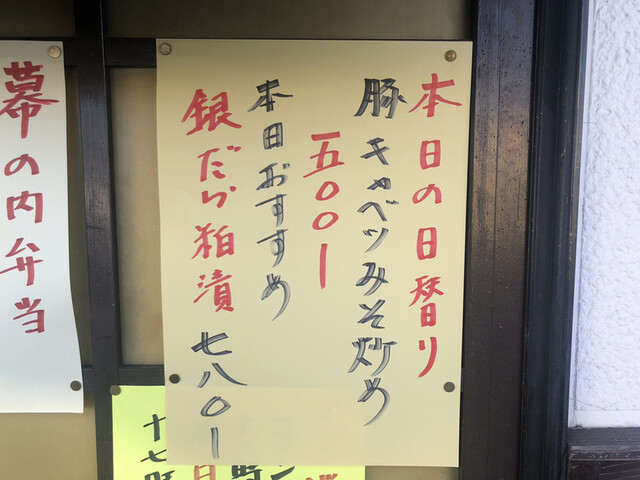 本日の日替り
豚キャベツみそ炒め
五〇〇ー
本日おすすめ
銀だら粕漬 七八〇ー
幕の内弁当
十七時